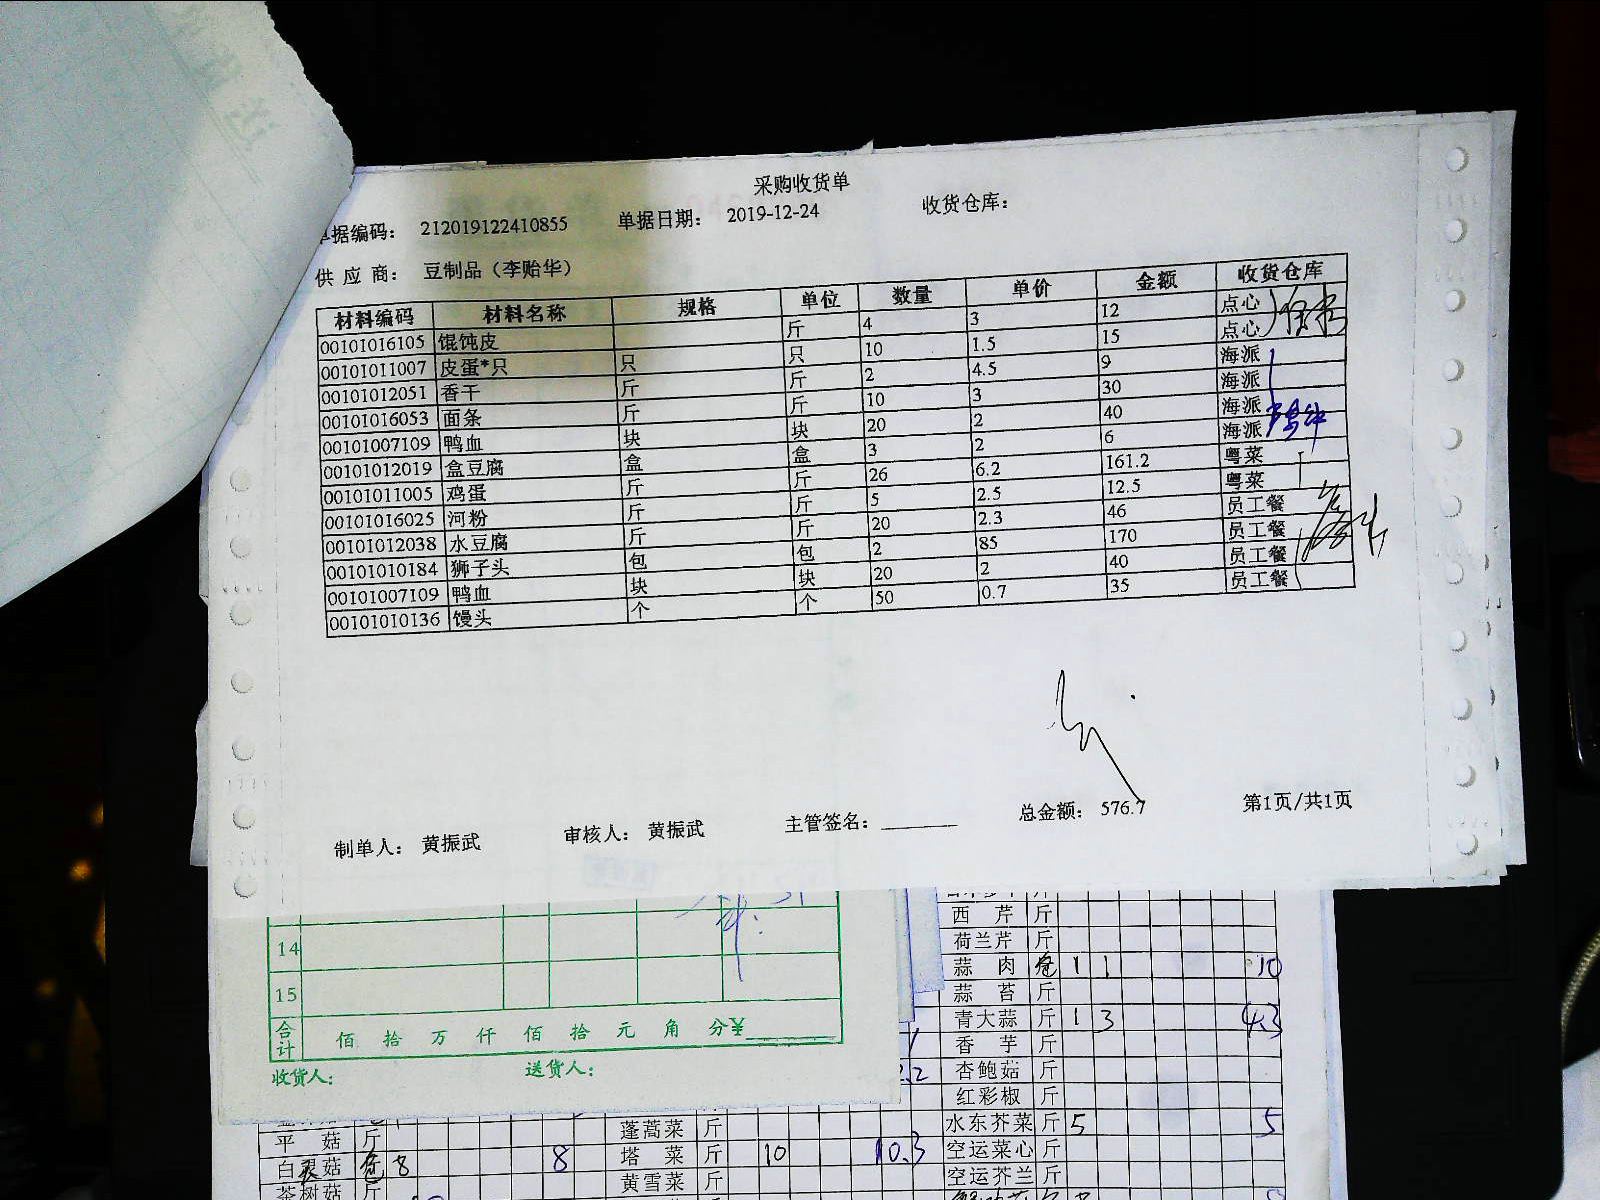 采购收货单
单据编码： 212019122410855 单据日期： 2019-12-24 收货仓库：
供应商： 豆制品（李贻华）
材料编码 材料名称 规格 单位 数量 单价 金额 收货仓库
00101016105 馄饨皮 斤 4 3 12 点心
00101011007 皮蛋*只 只 只 10 1.5 15 点心
00101012051 香干 斤 斤 2 4.5 9 海派
00101016053 面条 斤 斤 10 3 30 海派
00101007109 鸭血 块 块 20 2 40 海派
00101012019 盒豆腐 盒 盒 3 2 6 海派
00101011005 鸡蛋 斤 斤 26 6.2 161.2 粤菜
00101016025 河粉 斤 斤 5 2.5 12.5 粤菜
00101012038 水豆腐 斤 斤 20 2.3 46 员工餐
00101010184 狮子头 包 包 2 85 170 员工餐
00101007109 鸭血 块 块 20 2 40 员工餐
00101010136 馒头 个 个 50 0.7 35 员工餐
制单人： 黄振武 审核人： 黄振武 主管签名： 总金额： 576.7 第1页/共1页
14
15
合计 佰 拾 万 仟 佰 拾 元 角 分¥
收货人： 送货人：
西芹 斤
荷兰芹 斤
蒜肉 1 1 10
蒜苔 斤
青大蒜 斤 1 3 4.3
香芋 斤
杏鲍菇 斤
红彩椒 斤
水东芥菜 斤 5 5
空运菜心 斤
空运芥兰 斤
平菇 斤
白灵菇 8 8
茶树菇 斤
蓬蒿菜 斤
塔菜 斤 10 10.3
黄雪菜 斤